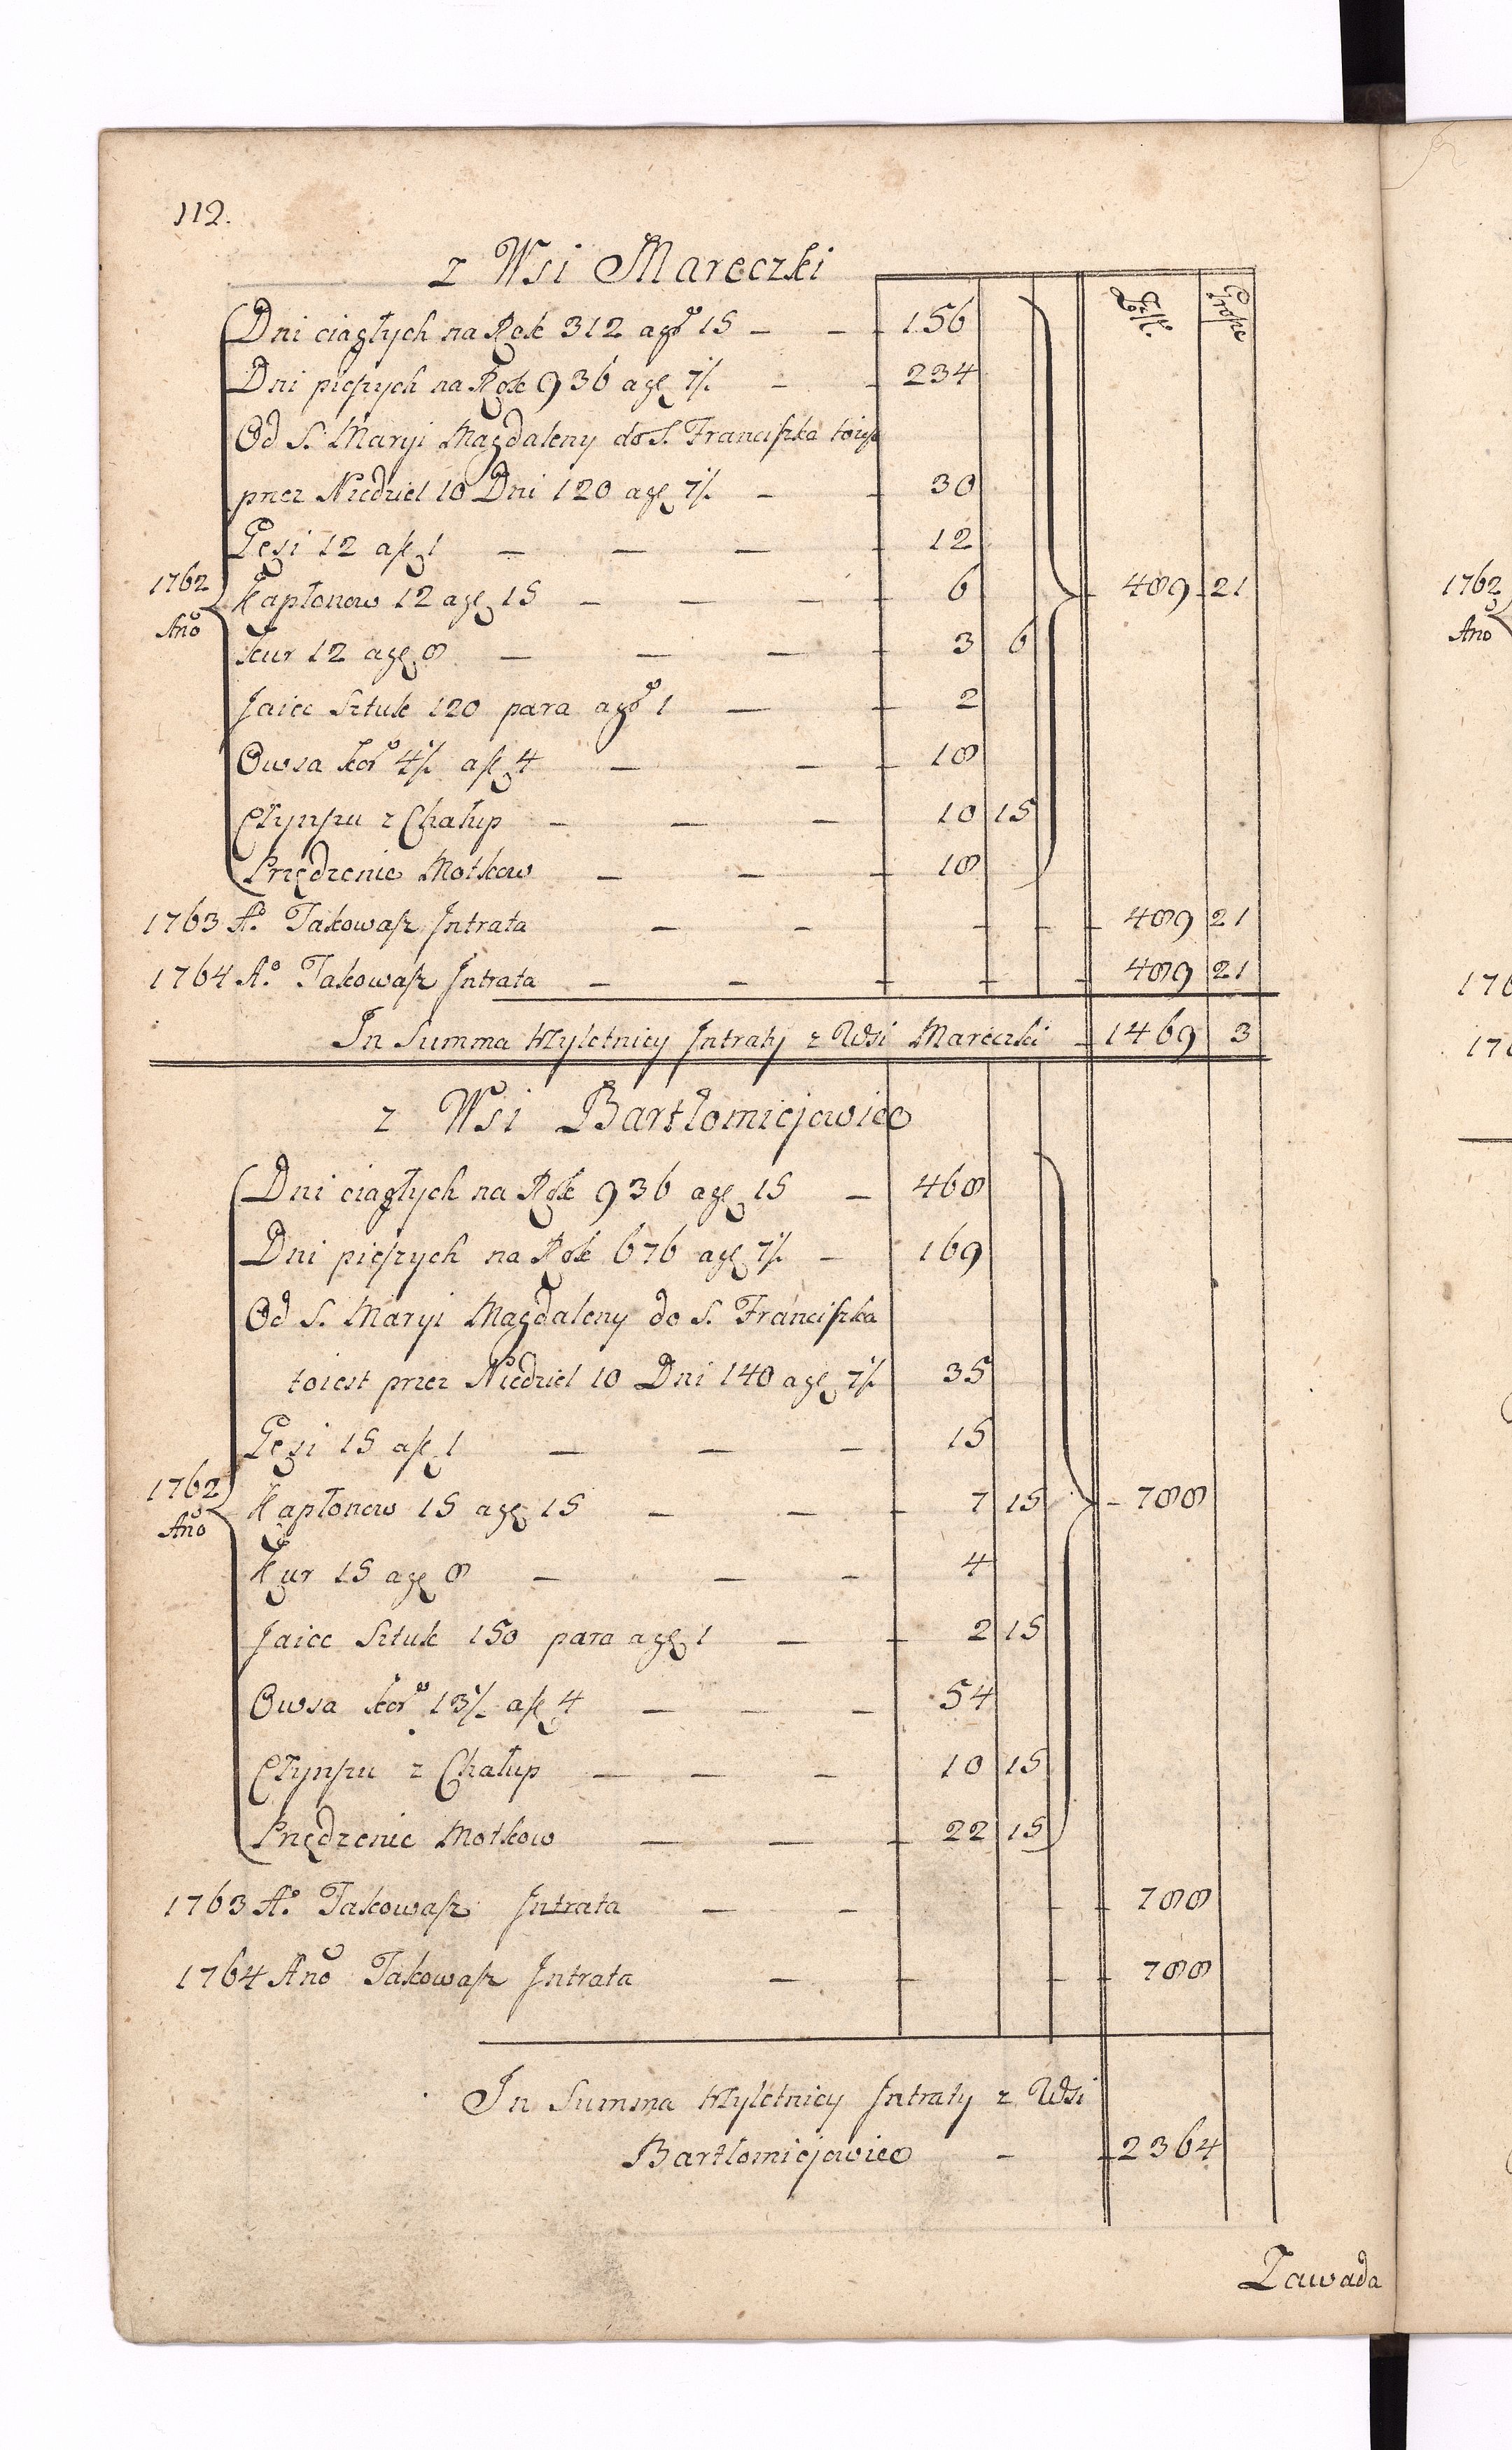 112.
z Wsi Mareczki
Złt. Grosze
Dni ciągłych na Rok 312 a gro 15 — — 156
Dni pieszych na Rok 936 a gr 7½ — — 234
Od S. Maryi Magdaleny do S. Franciszka toiest
przez Niedziel 10 Dni 120 a gr 7½ — — 30
Gęsi 12 a fl 1 — — — 12
1762 Kapłonow 12 a gr 15 — — — 6 — 489 21
Ano Kur 12 a gr 8 — — — 3 6
Jaiec Sztuk 120 para a gro 1 — — 2
Owsa kor 4½ a fl 4 — — 18
Czynszu z Chałup — — — 10 15
Przędzenie Motkow — — — 18
1763 Ao. Takowasz Intrata — — — 489 21
1764 Ao. Takowasz Intrata — — — 489 21
In Summa trzyletniey Intraty z Wsi Mareczki 1469 3
z Wsi Bartłomiejowiec
Dni ciągłych na Rok 936 a gr 15 — 468
Dni pieszych na Rok 676 a gr 7½ — 169
Od S. Maryi Magdaleny do S. Franciszka
toiest przez Niedziel 10 Dni 140 a gr 7½ 35
Gęsi 15 a fl 1 — — — 15
1762 Kapłonow 15 a gr 15 — — — 7 15 — 788
Ano
Kur 15 a gr 8 — — — 4
Jaiec Sztuk 150 para a gr 1 — — 2 15
Owsa kor 13½ a fl 4 — — — 54
Czynszu z Chałup — — — 10 15
Przędzenie Motkow — — — 22 15
1763 Ao. Takowasz Intrata — — — 788
1764 Ano Takowasz Intrata — — — 788
In Summa trzyletniey Intraty z Wsi
Bartłomiejowiec — 2364
Zawada
1762
Ano
176
176